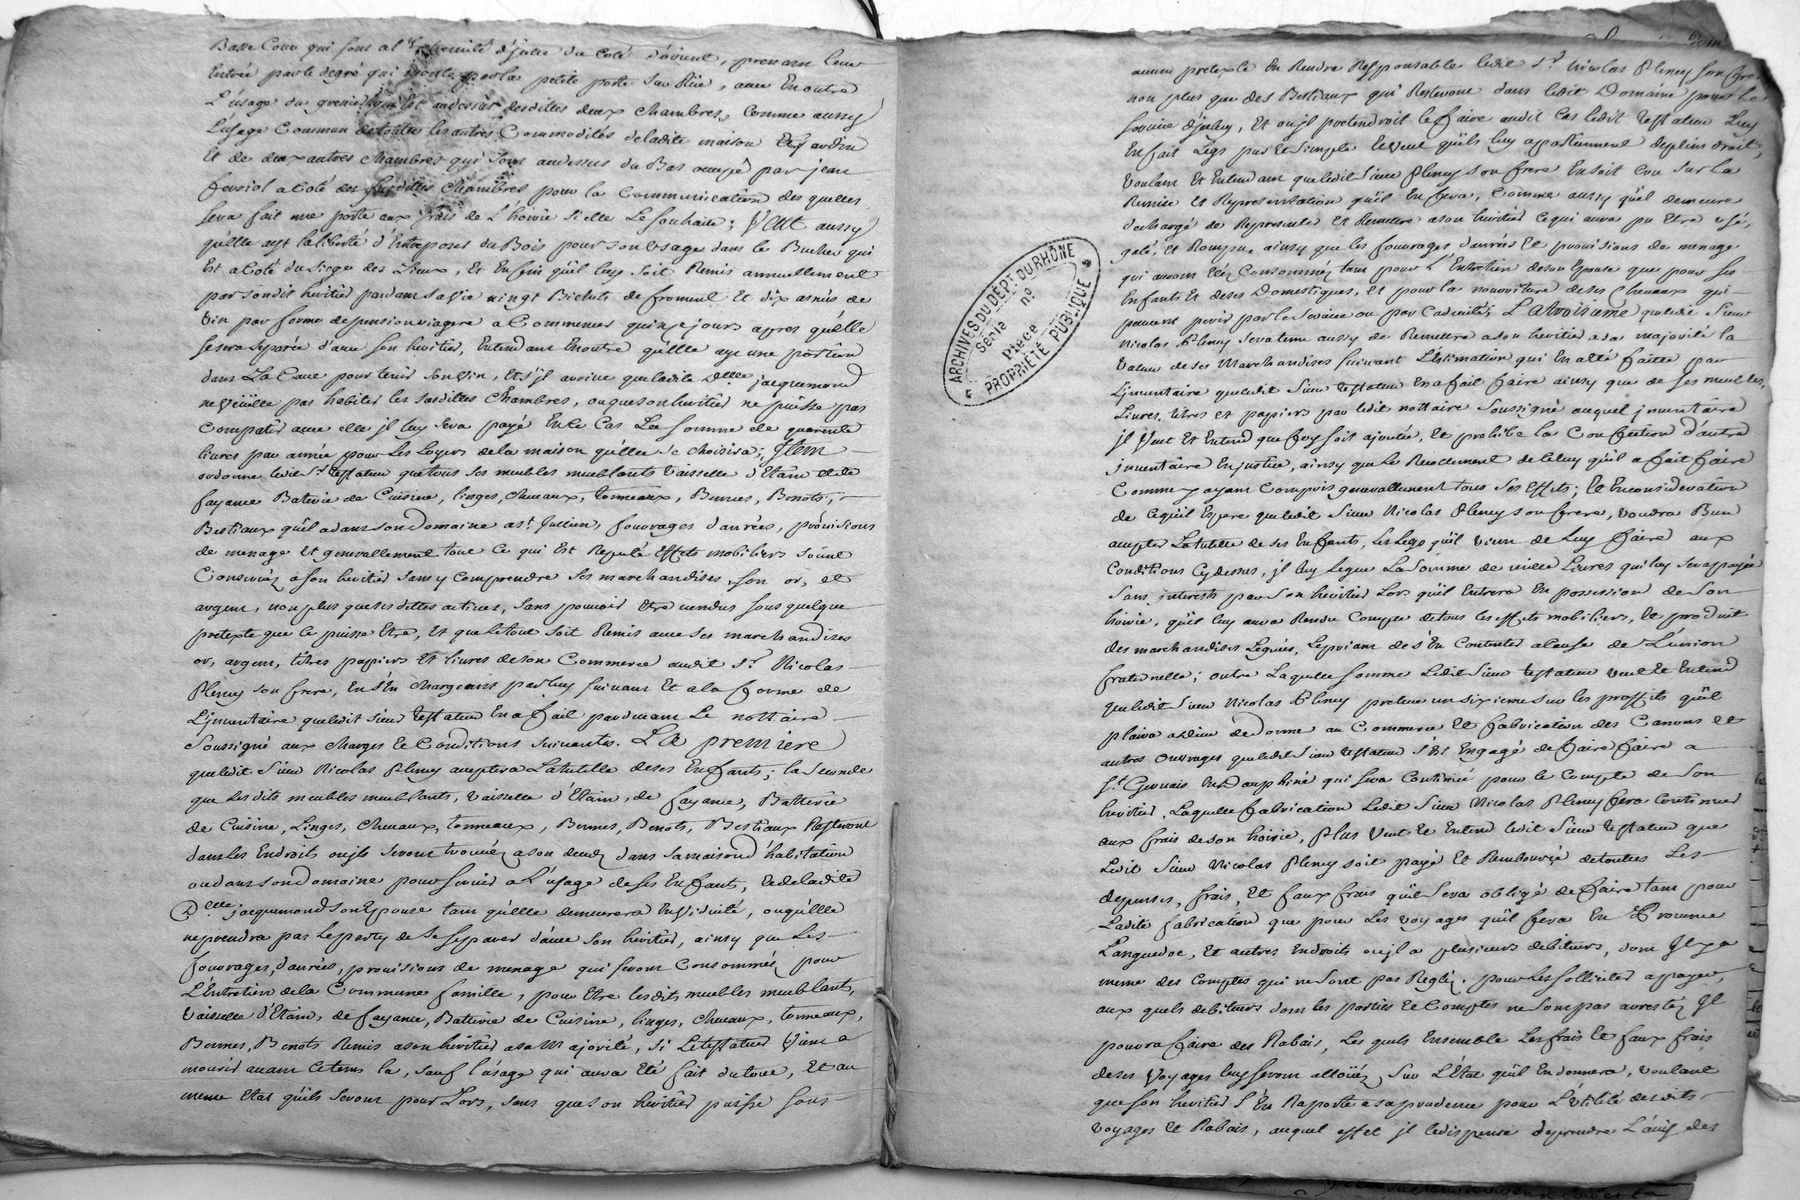 Basse Cour qui sont al'extremité d'jcelle du coté d'orient, prenant leur
Entrée par le degré qui monte par la petite porte sur Rüe, avec En outre
L'usage du grenier qui Est audessus desdittes deux Chambres, Comme aussy
L'usage Commun de touttes les autres Commodités deladite maison et jardin
Et de deux autres Chambres qui sont audessus du Bas occupé par jean
feriol acoté des susdittes Chambres pour la Communication des quelles
sera fait une porte aux frais de L'hoirie si elle Le souhaite; Veut aussy
qu'elle ayt la liberté d'Entreposer du Bois pour son usage dans le Bucher qui
Est acoté du siege des Lieux, Et Enfin qu'il luy soit Remis annuellement
par sondit heritier pendant sa vie vingt Bichets de froment Et dix asnées de
vin par forme de pension viagere a Commencer quinze jours apres qu'elle
se sera separée d'avec son heritier, Entendant En outre qu'elle aye une portion
dans La Cave pour tenir son vin, Et s'jl avoine que ladite Delle jacquemond
ne veüille pas habiter les susdittes Chambres, ou que son heritier ne puisse pas
Compatir avec elle jl luy sera payé En Ce Cas La somme de quarente
livres par année pour Les Loyers de la maison qu'elle se choisira; Item
ordonne ledit Sr. testateur que tous ses meubles meublants vaisselle d'Etain et de
fayance Baterie de Cuisine, linges, chevaux, tonneaux, Bennes, Benots,
Bestiaux qu'il a dans son domaine a St. Julien, fouvrages danrées, provisions
de menage Et generallement tout Ce qui Est Reputé Effets mobiliers soient
Conservéz a son heritier sans y comprendre ses marchandises, son or, et
argent, non plus que ses dettes actives, sans pouvoir Etre vendus sous quelque
pretexte que ce puisse Etre, Et que le tout soit Remis avec ses marchandises
or, argent, titres papiers Et livres de son Commerce audit Sr. Nicolas
Pleney son frere, En s'En chargeant par luy suivant Et a la forme de
L'jnventaire queledit sieur testateur En a fait pardevant Le nottaire
Soussigné aux charges Et Conditions suivantes. La premiere
queledit Sieur Nicolas Pleney acceptera La tutelle de ses Enfants; la seconde
que Lesdits meubles meublants, vaisselle d'Etain, de fayance, Batterie
de Cuisine, Linges, Chevaux, tonneaux, Bennes, Benots, Bestiaux Resteront
dans Les Endroits ou jls seront trouvéz a son decedz dans sa maison d'habitation
ou dans son domaine pour servir a L'usage de ses Enfants, et de ladite
Delle jacquemond son Epouse tant qu'elle demeurera En viduité, ou qu'elle
ne prendra pas Le party de se separer d'avec son heritier, ainsy que Les
fouvrages, danrées, provisions de menage qui seront Consomméz pour
L'Entretien de la Commune famille, pour Etre lesdits meubles meublants,
vaisselle d'Etain, de fayance, Batterie de Cuisine, linges, chevaux, tonneaux,
Bennes, Benots Remis a son heritier a sa Majorité, si Le testateur vient a
mourir avant Ce tems la, sauf l'usage qui aura Eté fait du tout, Et au
meme Etat qu'ils seront pour Lors, sans que son heritier puisse sous
aucun pretexte En Rendre Responsable ledit Sr. Nicolas Pleney son frere
non plus que des Bestiaux qui Resteront dans ledit Domaine pour le
service d'jceluy, Et ou jl pretendroit le faire audit Cas ledit testateur Luy
En fait Legs pur et simple et veut qu'ils luy appartiennent de plein droit,
voulant Et Entendant queledit sieur Pleney son frere En soit cru sur la
Remise Et Representation qu'il En fera, Comme aussy qu'il demeure
dechargé de Representer Et Remettre a son heritier Ce qui aura pu Etre usé,
gaté, Et Rompu, ainsy que les fouvrages danrées Et provisions de menage
qui auront étéz Consomméz tant pour L'Entretien de son Epouse que pour ses
Enfants Et de ses Domestiques, Et pour la nourriture de ses Chevaux qui
peuvent perir par le service ou par Caducité; La troisieme queledit Sieur
Nicolas Pleney sera tenu aussy de Remettre a son heritier a sa majorité la
valeur de ses Marchandises suivant L'Estimation qui En a été faitte par
L'jnventaire queledit Sieur testateur En a fait faire ainsy que de ses meubles,
Livres, titres et papiers par ledit nottaire Soussigné auquel jnventaire
jl Veut Et Entend que foy soit ajoutée, Et prohibe la Confection d'autre
jnventaire En justice, ainsy que le Recollement de celuy qu'il a fait faire
Comme y ayant Compris generallement tous ses Effets; Et En consideration
de Ce qu'il Espere queledit sieur Nicolas Pleney son frere, voudra Bien
accepter La tutelle de ses Enfants, Les Legs qu'il vient de Luy faire aux
Conditions Cy dessus, jl luy Legue La somme de mille Livres qui luy sera payée
sans jnterests par son heritier Lors qu'il Entrera En possession de son
hoirie, qu'il luy aura Rendu Compte de tous les effets mobiliers, Et produit
des marchandises Leguées, Le priant de s'En Contenter a Cause de L'union
fraternelle; outre Laquelle somme Ledit Sieur testateur veut Et Entend
queledit Sieur Nicolas Pleney preleve un sixieme sur les proffits qu'il
plaira a dieu de donner au Commerce Et fabrication des Canons et
autres ouvrages queledit sieur testateur s'Est Engagé de faire faire à
St. Gervais En Dauphiné qui sera Continué pour le Compte de son
heritier, Laquelle fabrication Ledit sieur Nicolas Pleney fera Continuer
aux frais de son hoirie, Plus Veut Et Entend ledit Sieur testateur que
Ledit sieur Nicolas Pleney soit payé Et Remboursé de touttes Les
depenses, frais, Et faux frais qu'il sera obligé de faire tant pour
Ladite fabrication que pour Les voyages qu'il fera En Provence
Languedoc, Et autres Endroits ou jl a plusieurs debiteurs, dont Jl y a
meme des Comptes qui ne sont pas Regléz, pour Les solliciter a payer,
aux quels debiteurs dont les parties et Comptes ne sont pas arrestéz Jl
pourra faire des Rabais, Les quels Ensemble Les frais Et faux frais
de ses voyages luy seront alloüéz sur L'Etat qu'il En donnera, voulant
que son heritier s'En Raporte a sa prudence pour L'Utilité desdits
voyages Et Rabais, auquel effet jl le dispense de prendre L'avis des
ARCHIVES DU DÉPT. DU RHÔNE
Série no
Pièce
PROPRIÉTÉ PUBLIQUE